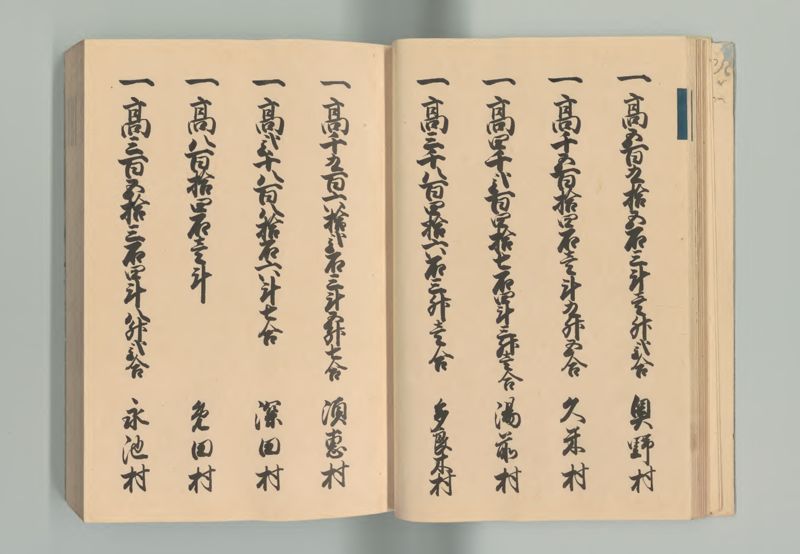 一 髙五百九拾五石三斗壱升弐合 奥野村
一 髙千五百拾四石壱斗九升五合 久米村
一 髙四千弐百四拾七石四斗三升壱合 湯前村
一 髙三千八百四拾六石三升壱合 多良木村
一 髙千九百六拾弐石三斗五升七合 須恵村
一 髙弐千八百八拾石六斗七合 深田村
一 髙八百拾四石壱斗 免田村
一 髙三百五拾三石四斗八升弐合 永池村